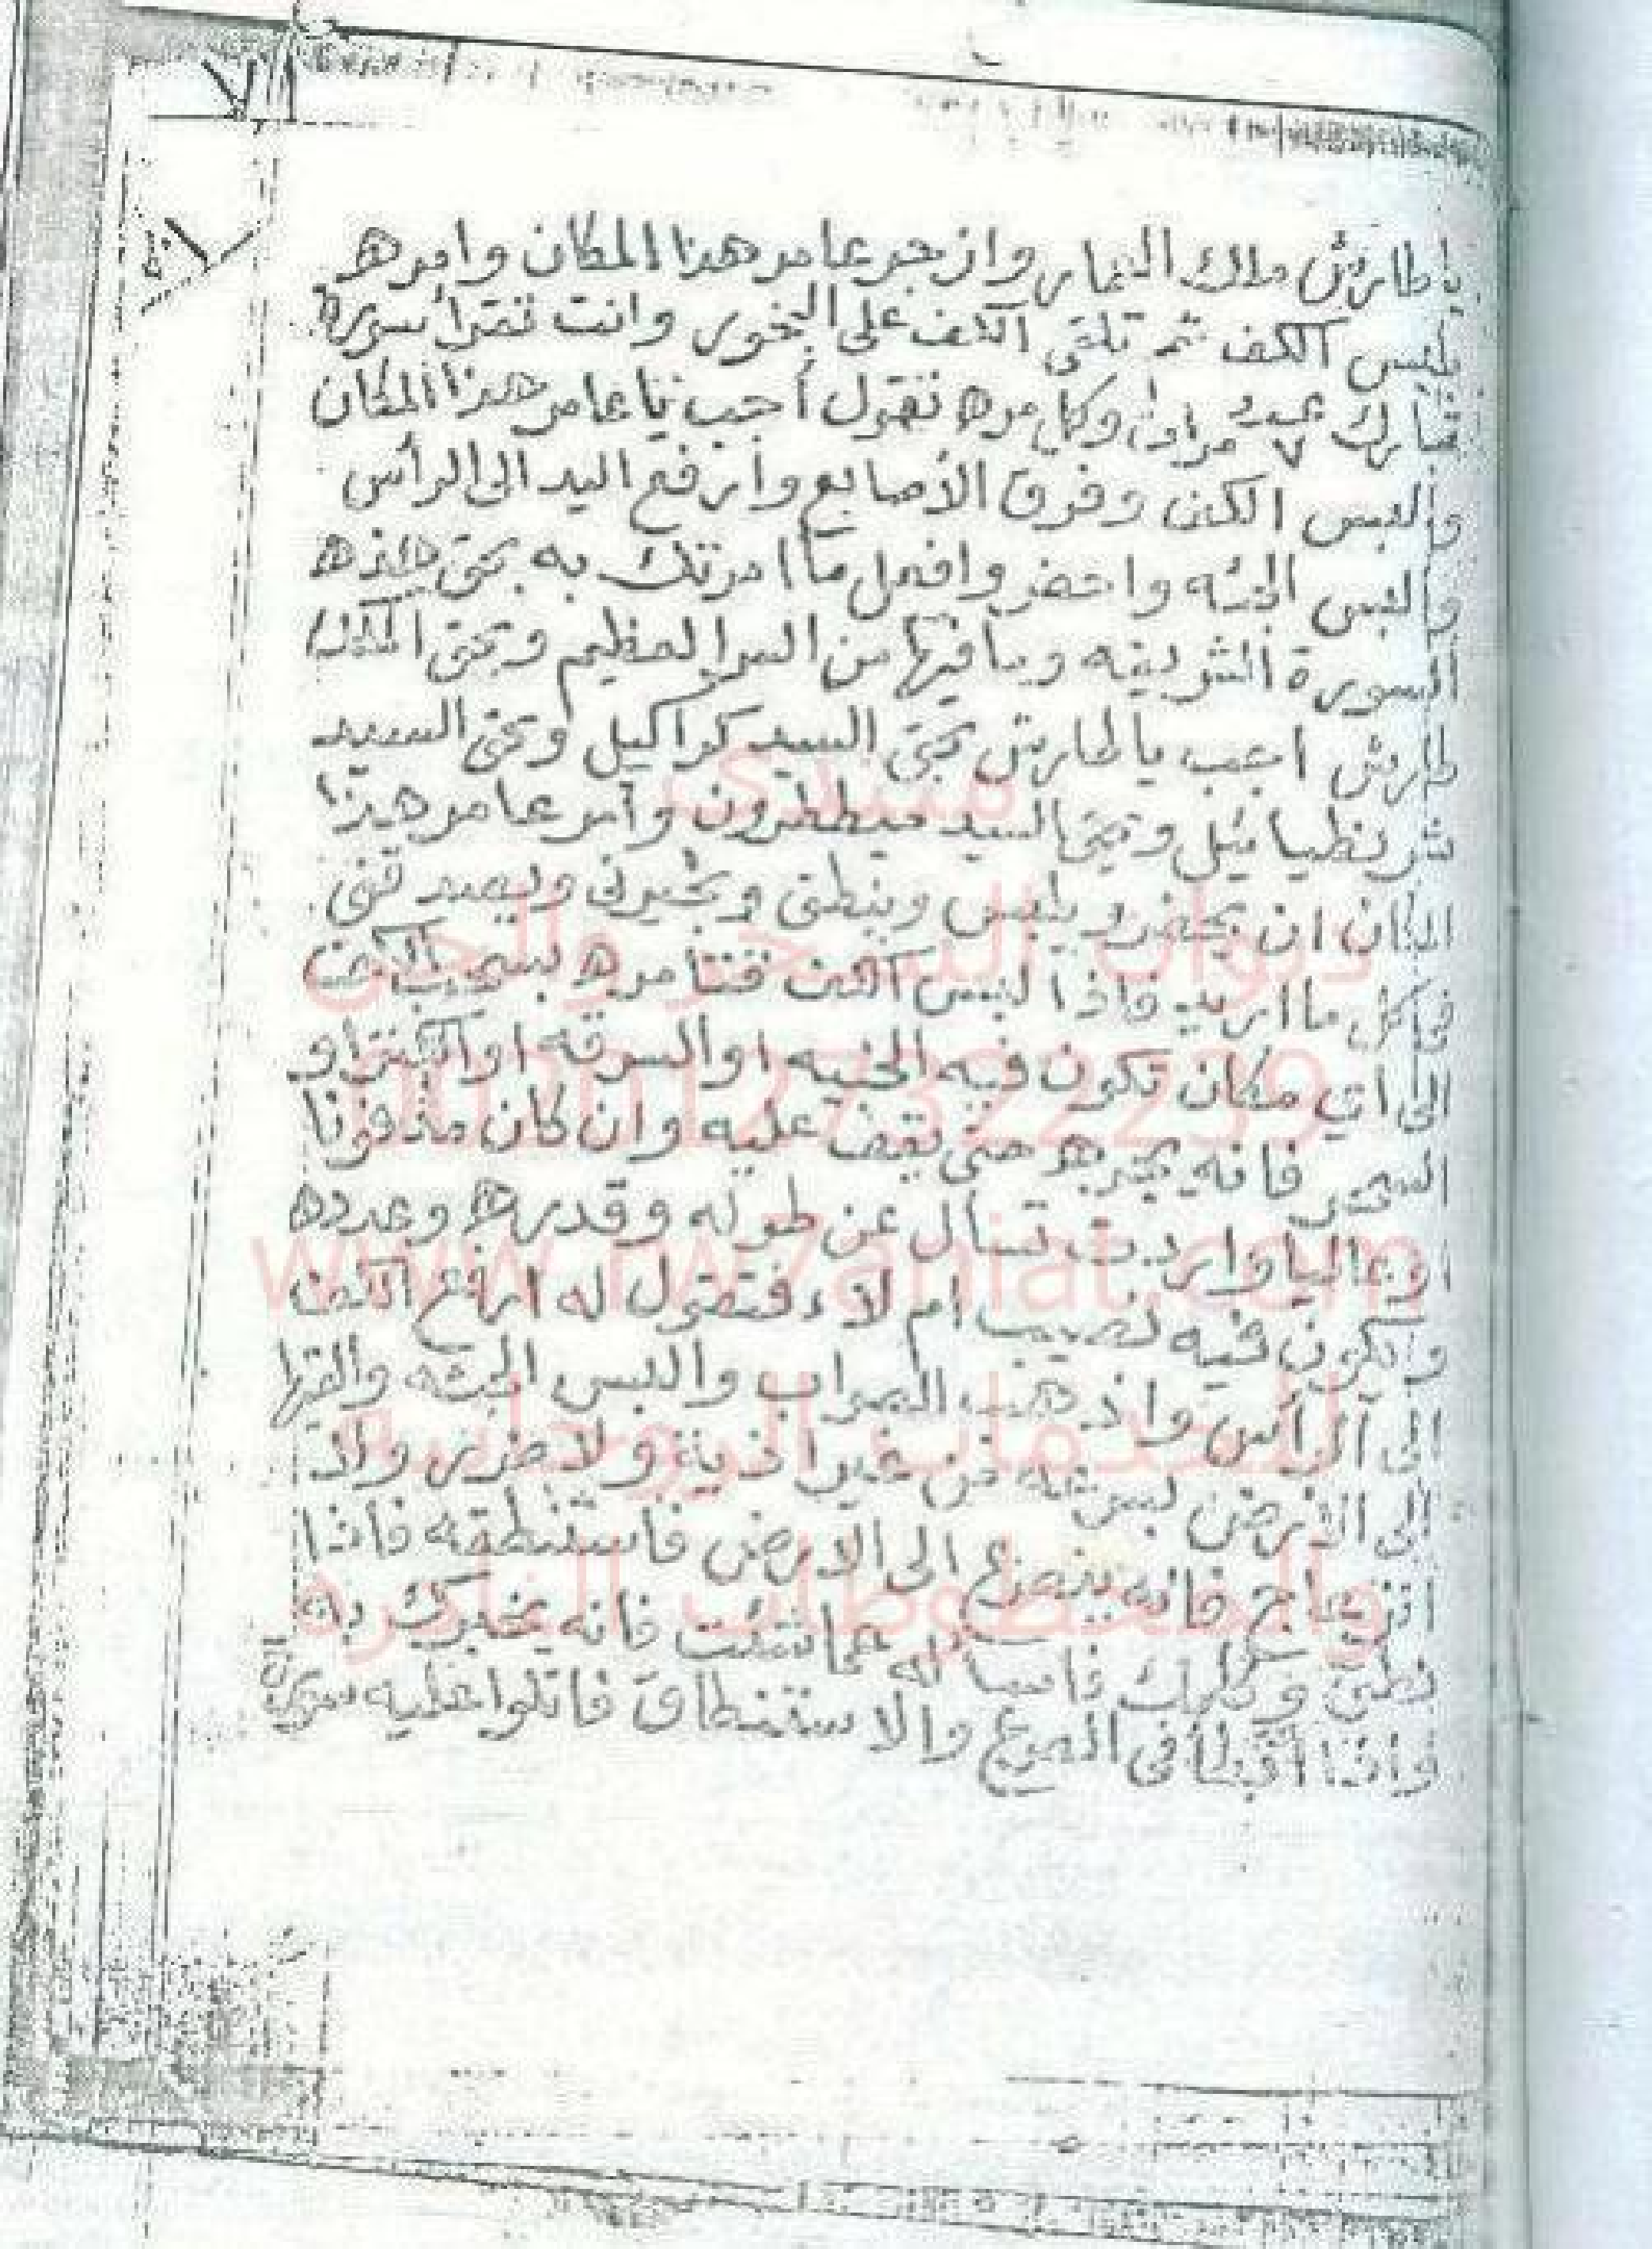 ٧
يا طارش ملك العمار وازجر عامر هذا المكان وامره
يلبس الكف ثم تلقى الكف على البخور وانت تقرأ سورة
تبارك عدد ٧ مرات وكل مره تقول أجب يا عامر هذا المكان
والبس الكف وفرق الأصابع وارفع اليد الى الرأس
والبس الجثه واحضر وافعل ما امرتك به بحق هذه
السورة الشريفه وما فيها من السر العظيم وبحق الملك
طارش اجب يا طارش بحق السيد كراكيل وبحق السيد
شرنطيائيل وبحق السيد ميططرون وأمر عامر هذا
المكان ان يحضر ويلبس وينطق ويخبرنى ويصدقنى
فى كل ما اريد فاذا لبس الكف فتأمره بسحب الكف
الى اي مكان تكون فيه الخبيه او السرقه او الكنز او
السحر فانه يجره حتى يقف عليه وان كان مدفونا
او عاليا واردت تسأل عن طوله وقدره وعدده
ويكون فيه نصيب ام لاء فتقول له ارفع الكف
الى الرأس واذهب الصواب والبس الجثه والقها
الى الارض بسرعه من غير اذية ولا ضرر ولا
انزعاج فانه ينصرع الى الارض فاستنطقه فاذا
نطق وكلمك فاسأله عما شئت فانه يخبرك به
واذا أبطأ فى الصرع والاستنطاق فاتلوا عليه سورة
منتدى
ديوان السحر والجن
00201273222239
www.rw7aniat.com
للخدمات الروحانيه
والمخطوطات النادره